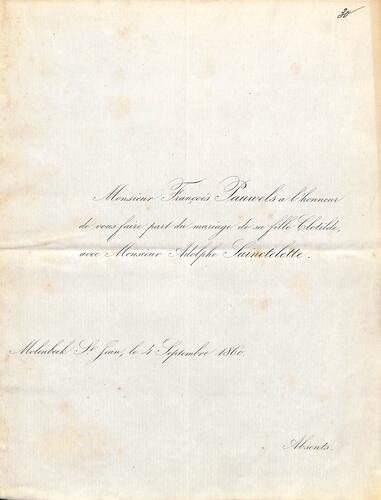 30
Monsieur François Pauwels a l'honneur
de vous faire part du mariage de sa fille Clotilde,
avec Monsieur Adolphe Sainctelette.
Molenbeek St Jean, le 4 Septembre 1860.
Absents.